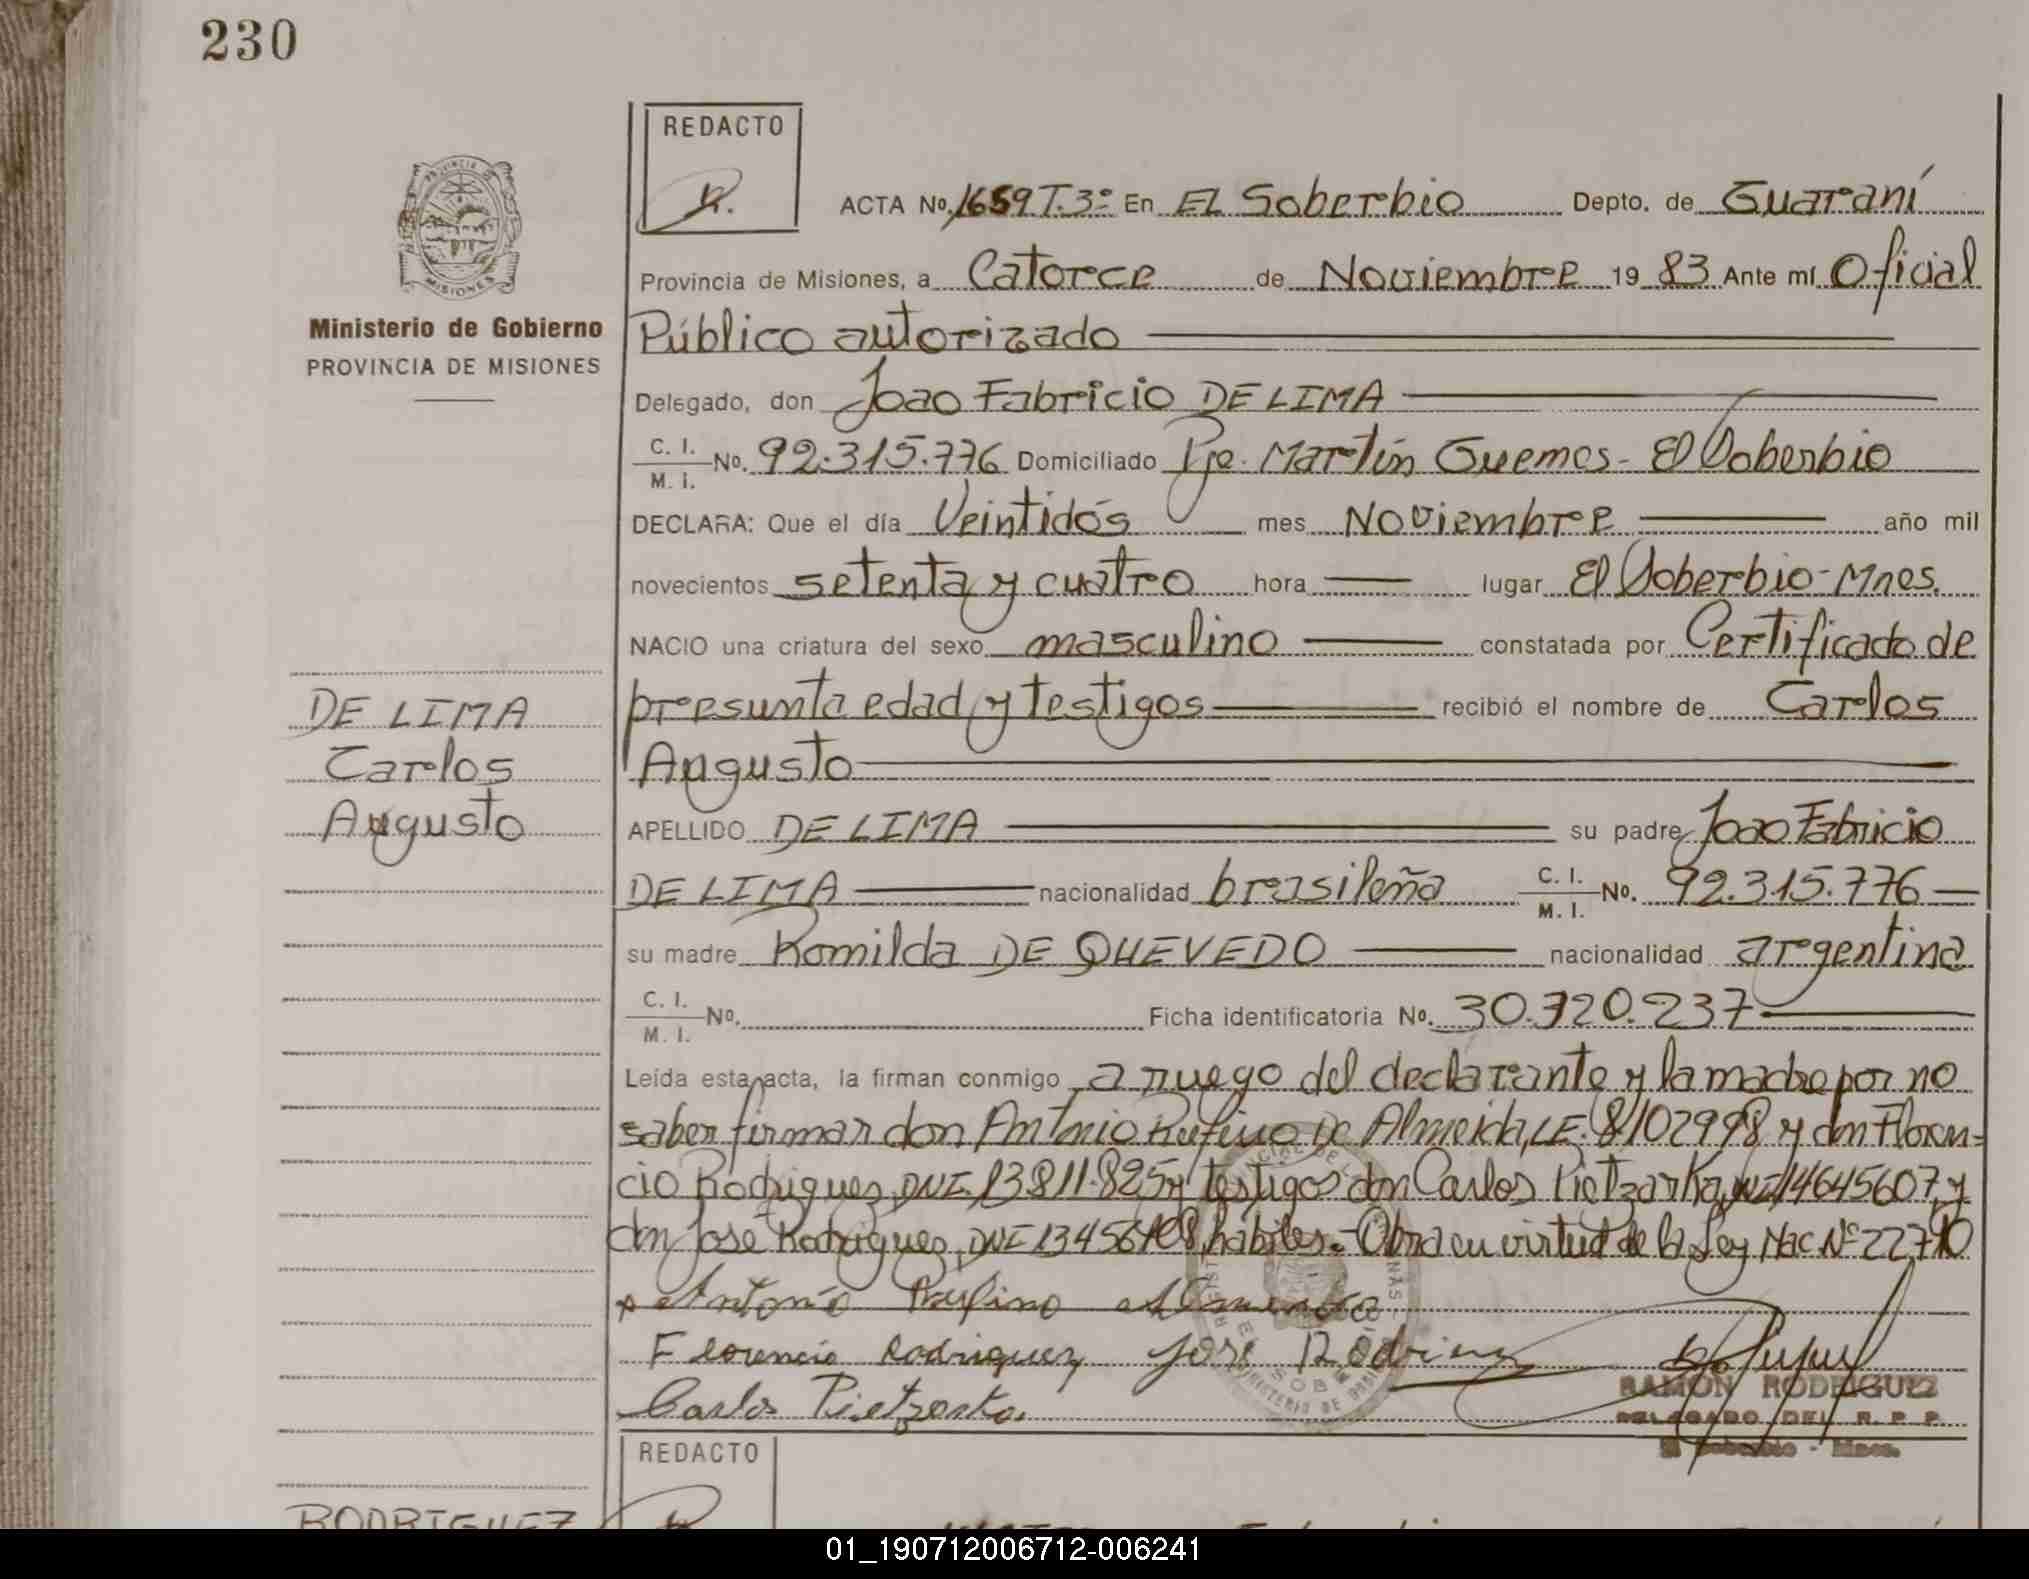 230
REDACTO
R.
ACTA No. 1659 T.3º En EL Soberbio Depto. de Guaraní
Provincia de Misiones, a Catorce de Noviembre 19 83 Ante mí Oficial
Ministerio de Gobierno
PROVINCIA DE MISIONES
Público autorizado
Delegado, don Joao Fabricio DE LIMA
C. I.
M. I. No. 92.315.776 Domiciliado Pje. Martín Guemes - El Soberbio
DECLARA: Que el día Veintidós mes Noviembre año mil
novecientos setenta y cuatro hora lugar El Soberbio - Mnes.
NACIO una criatura del sexo masculino constatada por Certificado de
presunta edad y testigos recibió el nombre de Carlos
Augusto
DE LIMA
Carlos
Augusto
APELLIDO DE LIMA su padre Joao Fabricio
DE LIMA nacionalidad brasileña C. I.
M. I. No. 92.315.776
su madre Romilda DE QUEVEDO nacionalidad argentina
C. I.
M. I. No. Ficha identificatoria No. 30.720.237
Leída esta acta, la firman conmigo a ruego del declarante y la madre por no
saber firmar don Antonio Rufino De Almeida, L.E. 8102998 y don Floren=
cio Rodriguez, DNI. 13811.825 y testigos don Carlos Pietzarka, DNI 14645607, y
don Jose Rodriguez, DNI 13456408 hábiles.- Obra en virtud de la Ley Nac Nº 22710
Antonio Rufino Almeida
Florencio Rodriguez Jose Rodriguez
Carlos
RAMON RODRIGUEZ
DELEGADO DEL R. P. P.
El Soberbio - Mnes.
REDACTO
RODRIGUEZ
01_190712006712-006241